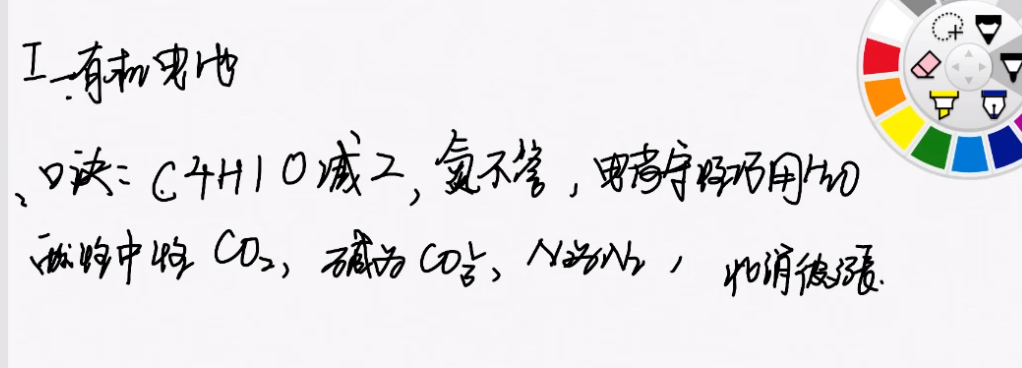 I、有机电池
口诀：C4H1O减2，氮不管，电荷守恒巧用H2O
酸性中性 CO₂，碱为 CO₃²⁻，N为N₂，此消彼涨.